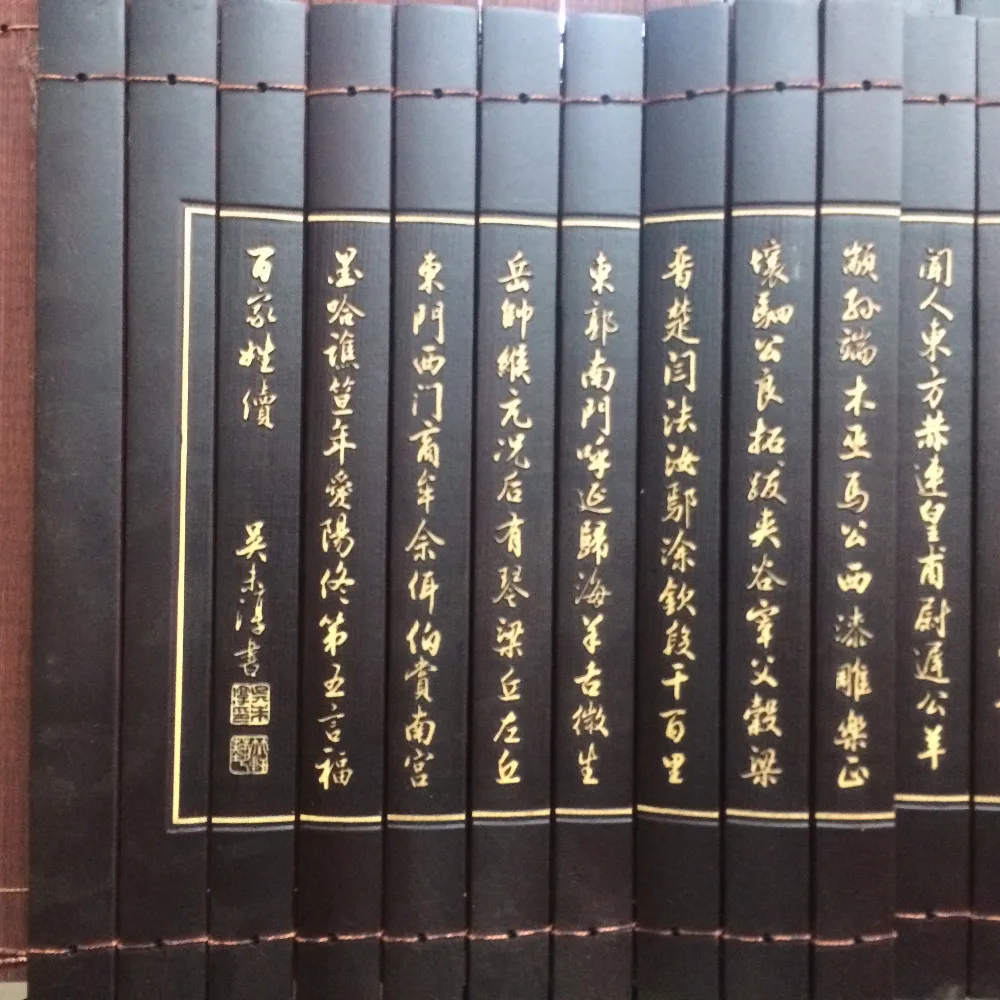 聞人東方赫連皇甫尉遲公羊
顓孫端木巫馬公西漆雕樂正
壤駟公良拓跋夾谷宰父穀梁
晉楚閆法汝鄢涂欽段干百里
東郭南門呼延歸海羊舌微生
岳帥緱亢况后有琴梁丘左丘
東門西门商牟佘佴伯賞南宮
墨哈譙笪年愛陽佟第五言福
百家姓續 吳未淳書